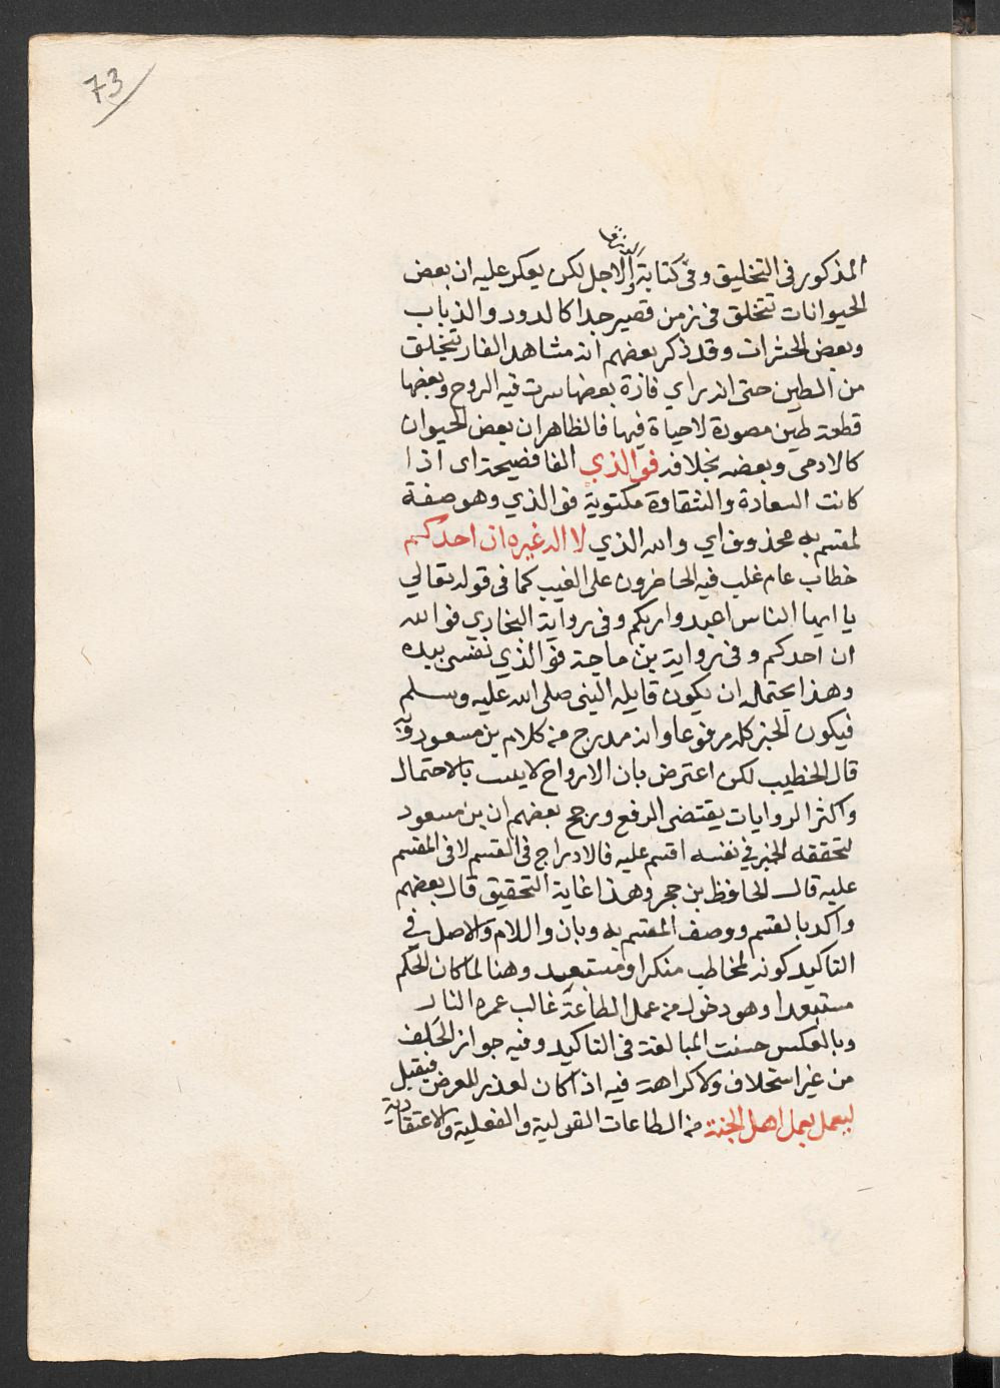 73
المذكور في التخليق وفي كتابة الاجل لكن يعكر عليه ان بعض
الحيوانات تتخلق في زمن قصير جدا كالدود والذباب
وبعض الحشرات وقد ذكر بعضهم انه شاهد الفار يتخلق
من الطين حتى انه راي فارة بعضها سرت فيه الروح وبعضها
قطعة طين مصورة لا حياة فيها فالظاهر ان بعض الحيوان
كالادمى وبعضه بخلافه فوالذي الفا فصيحة اى اذا
كانت السعادة والشقاوة مكتوبة فوالذي وهو صفة
لمقسم به محذوف اي والله الذي لا اله غيره ان احدكم
خطاب عام غلب فيه الحاضرون على الغيب كما في قوله تعالي
يا ايها الناس اعبدوا ربكم وفي رواية البخاري فوالله
ان احدكم وفي رواية بن ماجة فوالذي نفسي بيده
وهذا يحتمله ان يكون قايله النبي صلى الله عليه وسلم
فيكون الخبر كله مرفوعا وانه مدرج من كلام بن مسعود وبه
قال الخطيب لكن اعترض بان الارواح لا يثبت بالاحتمال
واكثر الروايات يقتضى الرفع ورجح بعضهم ان بن مسعود
لتحققه الخبر في نفسه اقسم عليه فالادراج في القسم لا في المقسم
عليه قال الحافظ بن حجر وهذا غاية التحقيق قال بعضهم
واكد بالقسم ووصف المقسم به وبان واللام والاصل في
التاكيد كونه لمخاطب منكر او مستبعد وهنا لما كان الحكم
مستبعدا وهو دخول من عمل الطاعة غالب عمره النار
وبالعكس حسنت المبالغة في التاكيد وفيه جواز الحلف
من غير استحلاف ولا كراهة فيه اذا كان لعذر للعرض فيقبل
ليعمل بعمل اهل الجنة من الطاعات القولية والفعلية والاعتقادية